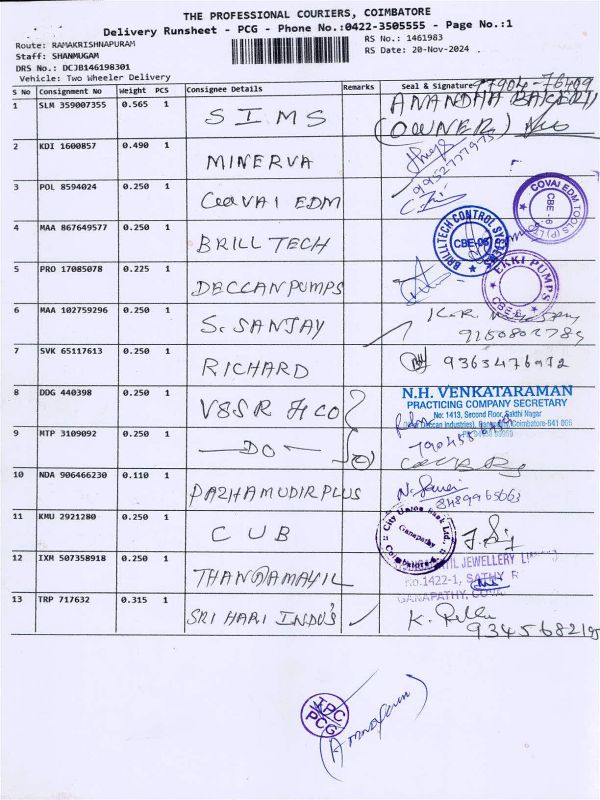 THE PROFESSIONAL COURIERS, COIMBATORE
Delivery Runsheet - PCG - Phone No.:0422-3505555 - Page No.:1
Route: RAMAKRISHNAPURAM
RS No.: 1461983
Staff: SHANMUGAM
RS Date: 20-Nov-2024
DRS No.: DCJB146198301
Vehicle: Two Wheeler Delivery
S No Consignment No Weight PCS Consignee Details Remarks Seal & Signature
77904-76409
1 SLM 359007355 0.565 1 SIMS ANANDHA
(OWNER)
2 KDI 1600857 0.490 1 MINERVA
9952777975
3 POL 8594024 0.250 1 COVAI EDM
COVAI EDM TOOLS (P) LTD
CBE-6
4 MAA 867649577 0.250 1 BRILL TECH
BRILLTECH CONTROL SYSTEMS
CBE-06
5 PRO 17085078 0.225 1 DECCAN PUMPS
EKKI PUMPS
CBE-6
6 MAA 102759296 0.250 1 S. SANJAY K.R.
7 SVK 65117613 0.250 1 RICHARD 9363476972
8 DDG 440398 0.250 1 V8SR & CO
N.H. VENKATARAMAN
PRACTICING COMPANY SECRETARY
No: 1413, Second Floor, Sakthi Nagar
Coimbatore-641 006
9 MTP 3109092 0.250 1 —DO—
10 NDA 906466230 0.110 1 PAZHAMUDIR PLUS
8489965663
11 KMU 2921280 0.250 1 CUB
City Union Bank Ltd.
Ganapathy
Coimbatore
12 IXM 507358918 0.250 1 THANGAMAYIL
JEWELLERY
No.1422-1, SATHY R
GANAPATHY,
13 TRP 717632 0.315 1 SRI HARI INDU'S K.
TPC
PCG